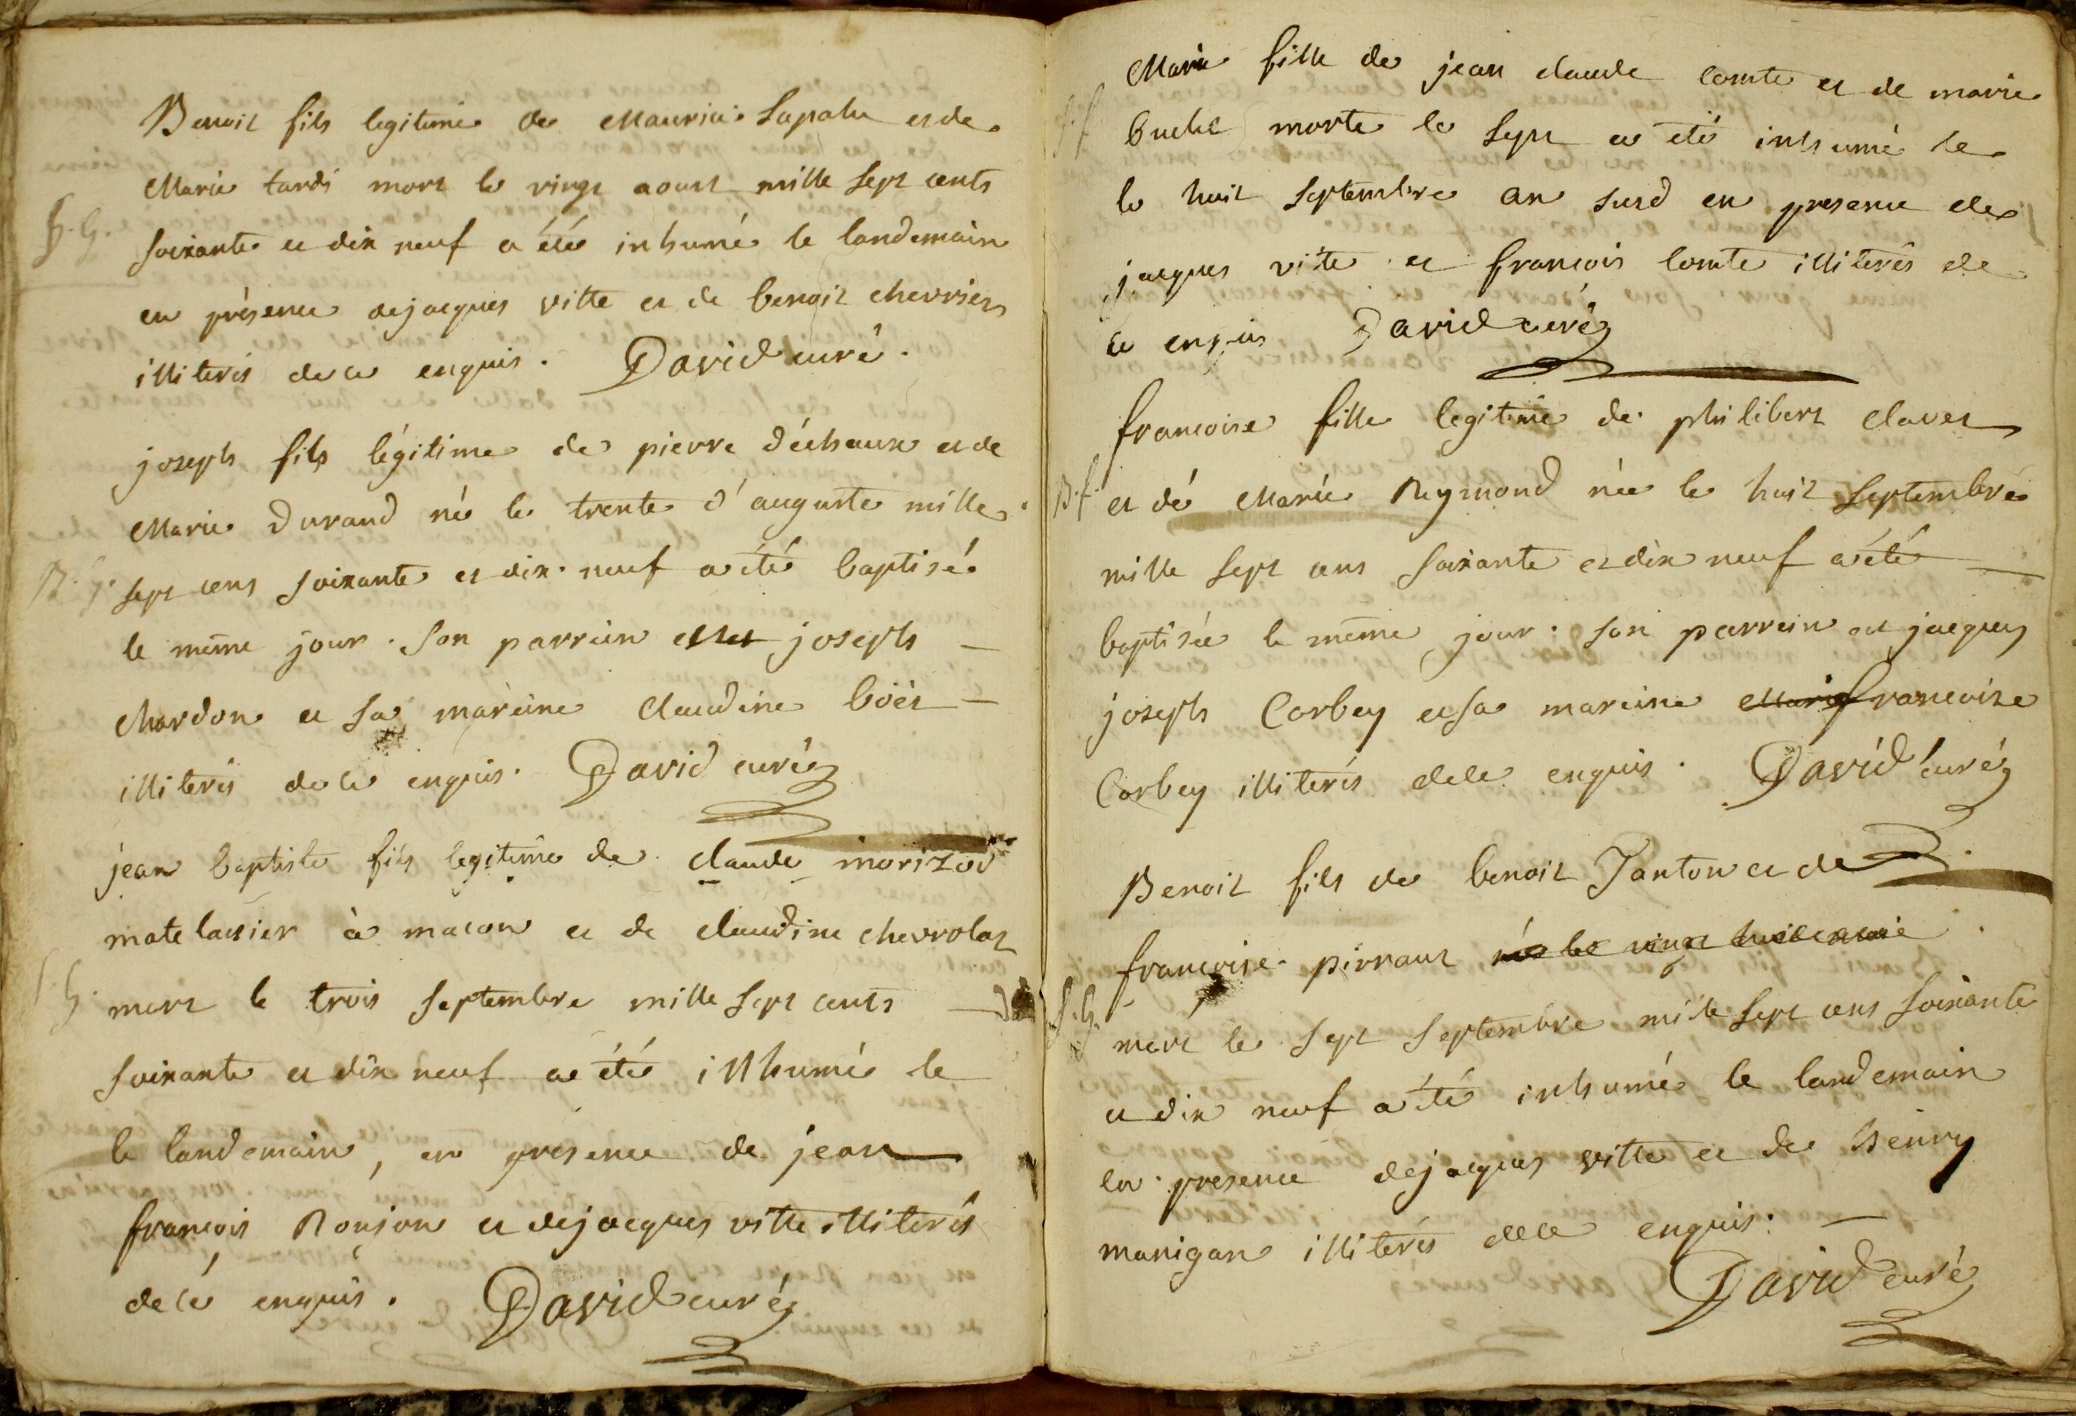 Benoit fils legitime de Maurice Lapalu et de
Marie tardi mort le vingt aoust mille sept cents
S. G. soixante et dix neuf a été inhumé le landemain
en présence de jacques vitte et de benoit chevrier
illiterés de ce enquis. David curé.
joseph fils légitime de pierre déchaux et de
Marie Durand né le trente d'auguste mille
B. G. sept cens soixante et dix neuf a été baptisé
le même jour. Son parrein joseph
chardon et sa mareine Claudine boët
illiterés de ce enquis. David curé
jean baptiste fils legitime de claude morizot
matelassier à macon et de claudine chevrolat
S. G. mort le trois septembre mille sept cents
soixante et dix neuf a été inhumé le
le landemain, en presence de jean
françois Ronjon et de jacques vitte illiterés
de ce enquis. David curé
Marie fille de jean claude comte et de marie
S. f. buchet morte le sept a été inhumé le
le huit septembre an susd en presence de
jacques vite et françois comte illiterés de
ce enquis David curé
francoise fille legitime de philibert claret
B. f. et de Marie Reymond née le huit septembre
mille sept cens soixante et dix neuf a été
baptisée le même jour. son parrein est jacques
joseph Corbey et sa mareine Marie francoise
Corbey illiterés de ce enquis. David curé
Benoit fils de benoit Janton et de
francoise pirraut né le vingt huit
S. G. mort le sept septembre mille sept cens soixante
et dix neuf a été inhumé le landemain
en presence de jacques vitte et de henry
manigan illiterés de ce enquis.
David curé